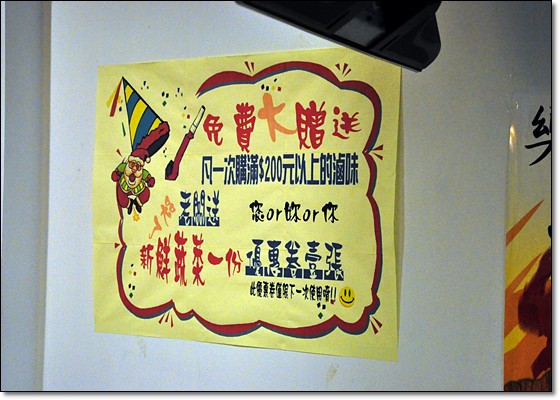 免費大贈送
凡一次購滿$200元以上的滷味
老闆送 您or妳or你
新鮮蔬菜一份優惠券壹張
此優惠券僅限下一次使用唷!!
樂